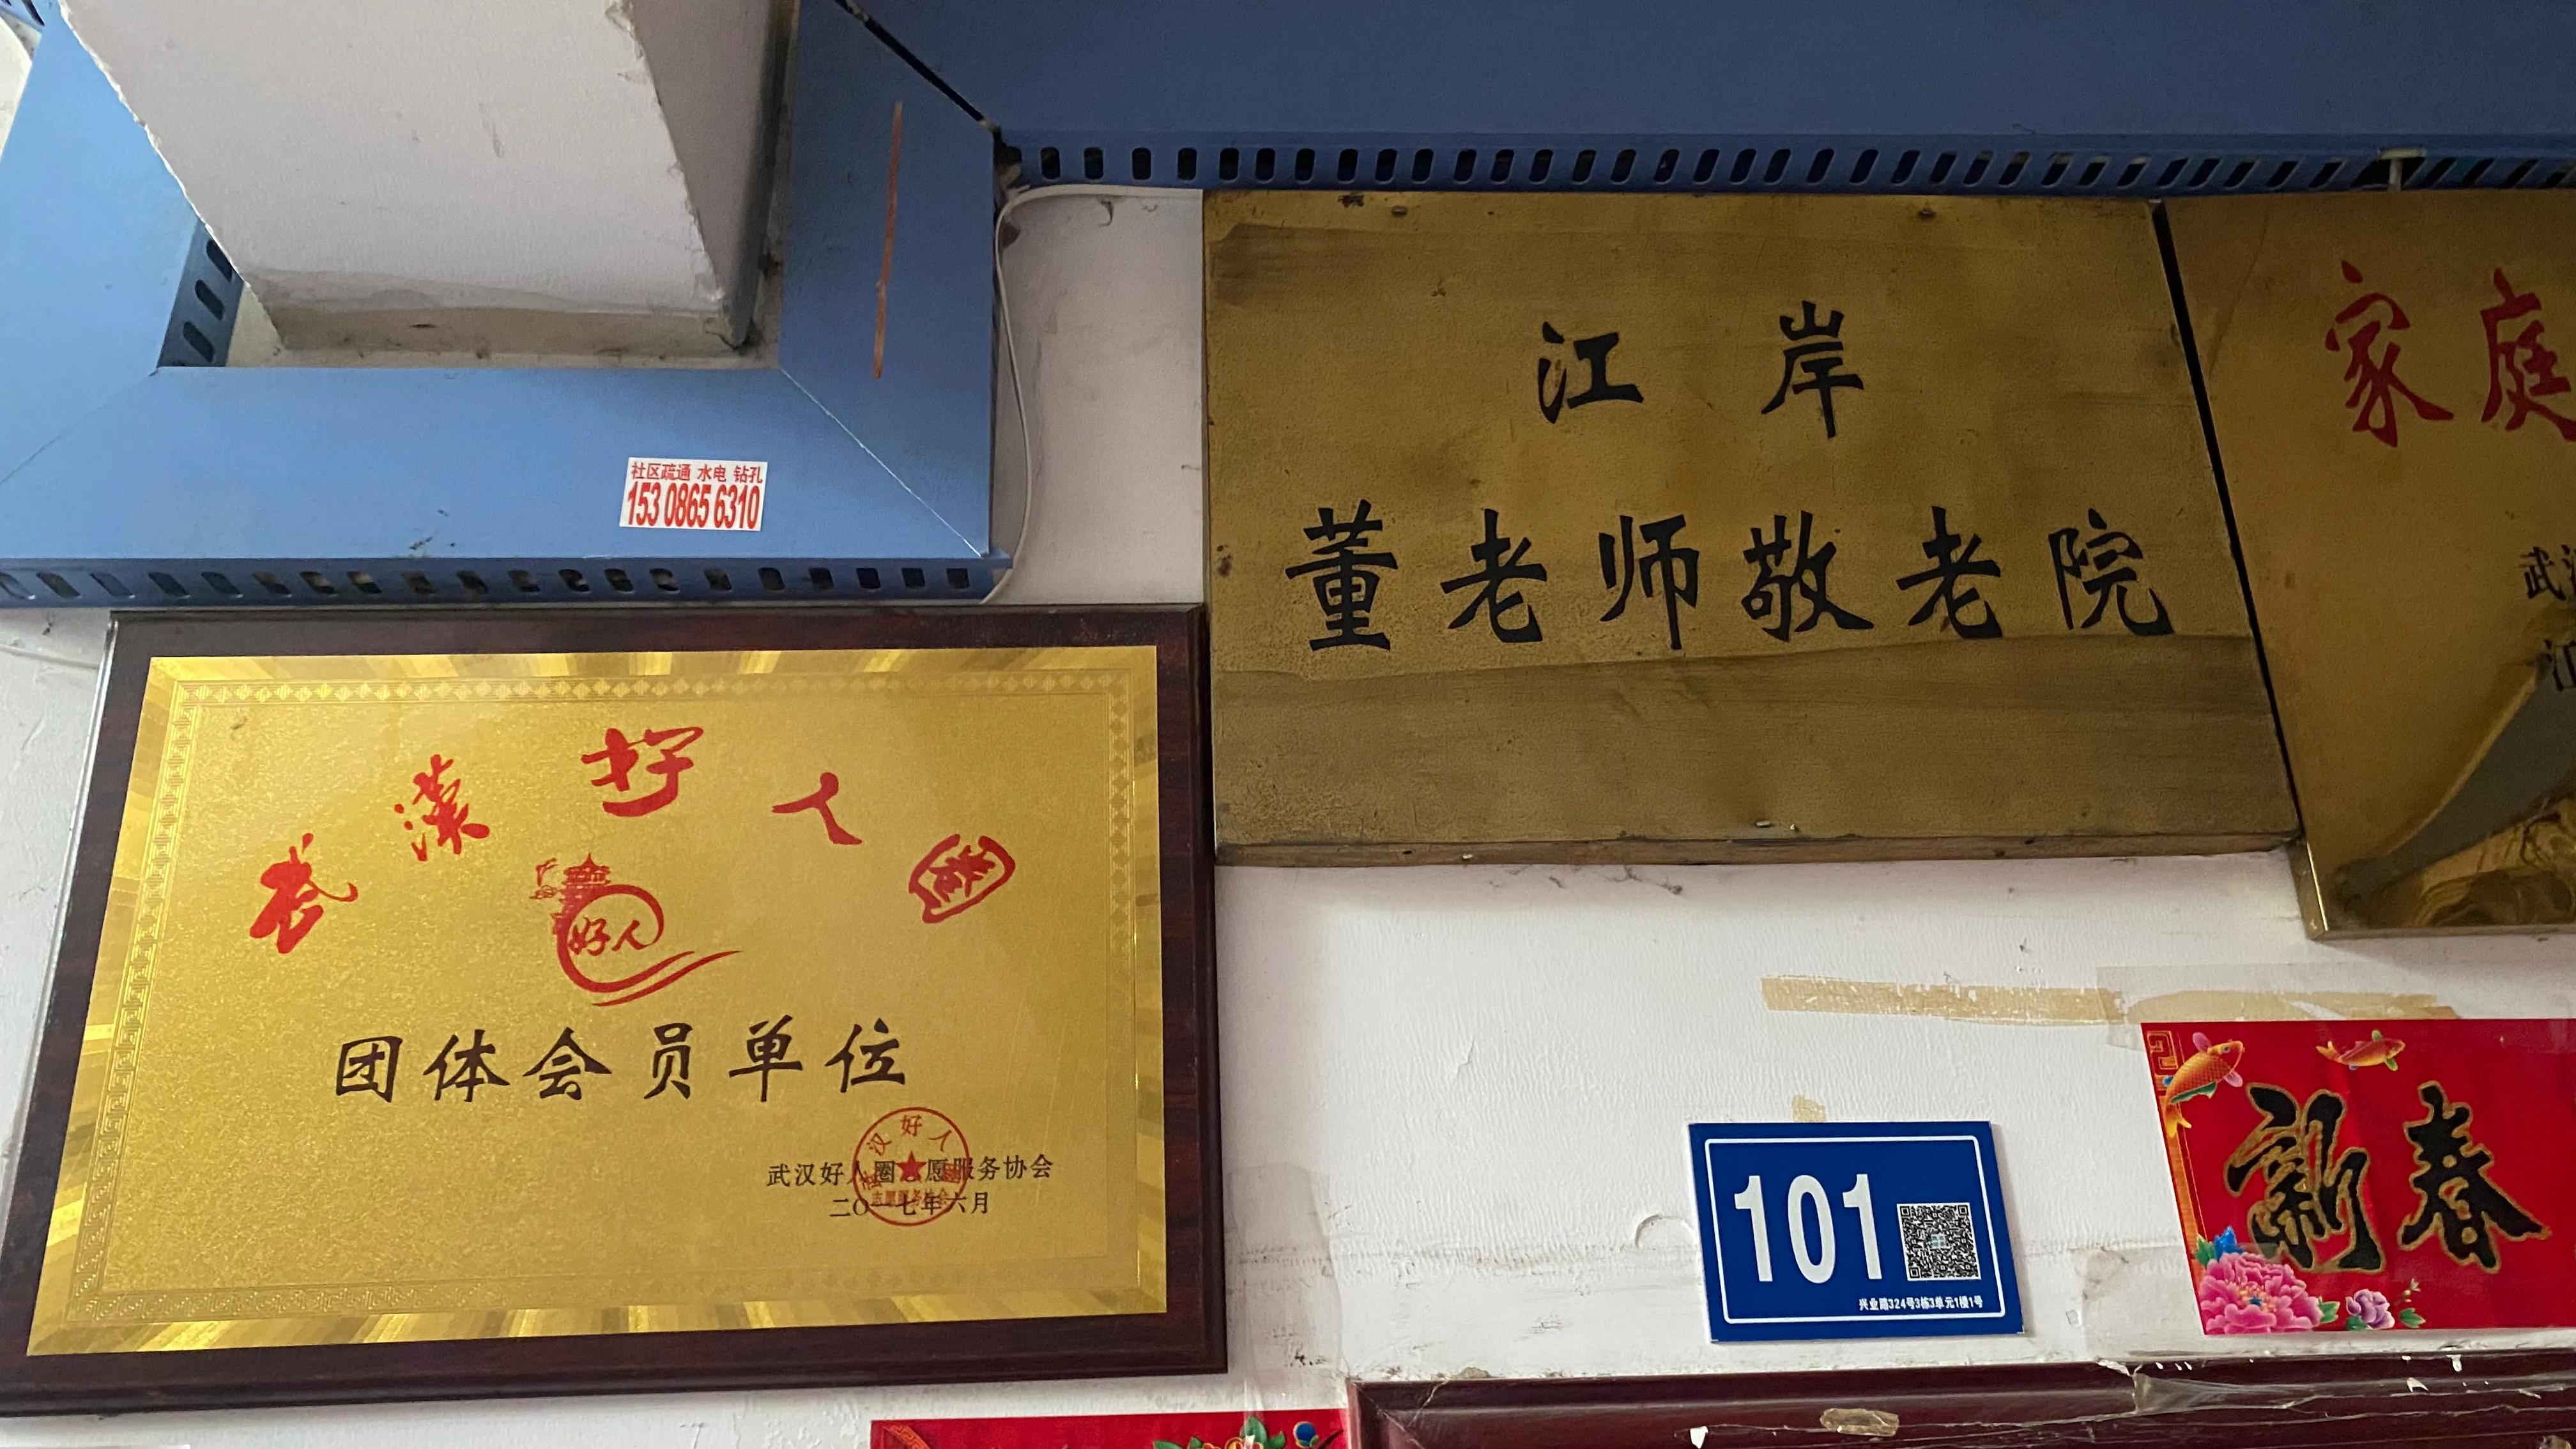 社区疏通 水电 钻孔
153 0865 6310
江岸
董老师敬老院
家庭
武汉好人圈
好人
团体会员单位
武汉好人圈志愿服务协会
二〇一七年六月
101
兴业路324号3栋3单元1楼1号
新春